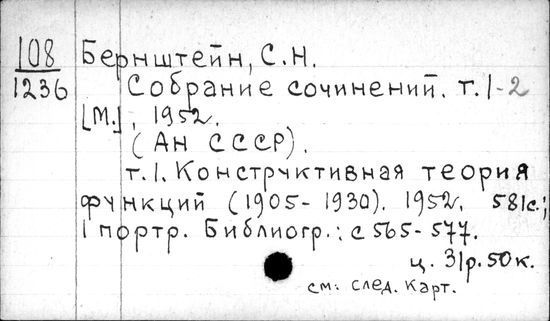 108 Бернштейн, С.Н.
1236 Собрание сочинений. т.1-2
[М.], 1952.
(АН СССР).
т.1. Конструктивная теория
функций (1905-1930). 1952. 581с.;
1 портр. Библиогр.: с 565-577.
ц. 31р. 50к.
см: след. карт.